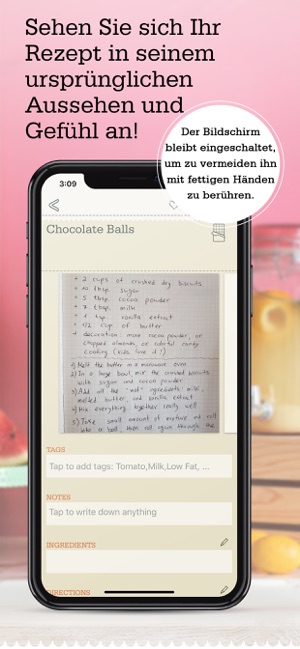 Sehen Sie sich Ihr
Rezept in seinem
ursprünglichen
Aussehen und
Gefühl an!
Der Bildschirm
bleibt eingeschaltet,
um zu vermeiden ihn
mit fettigen Händen
zu berühren.
3:09
Chocolate Balls
2 cups of crushed dry biscuits
10 tbsp. sugar
5 tbsp. cocoa powder
7 tbsp. milk
1 tsp. vanilla extract
1/2 cup of butter
decoration: more cocoa powder, or
chopped almonds, or colorful candy
coating (kids love it!)
1) Melt the butter in a microwave oven
2) In a large bowl mix the crushed biscuits
with sugar and cocoa powder
3) Add all the "wet" ingredients: milk,
melted butter, and vanilla extract
4) Mix everything together really well
5) Take small amount of mixture and roll
into a ball, then roll again through the
TAGS
Tap to add tags: Tomato,Milk,Low Fat, ...
NOTES
Tap to write down anything
INGREDIENTS
DIRECTIONS